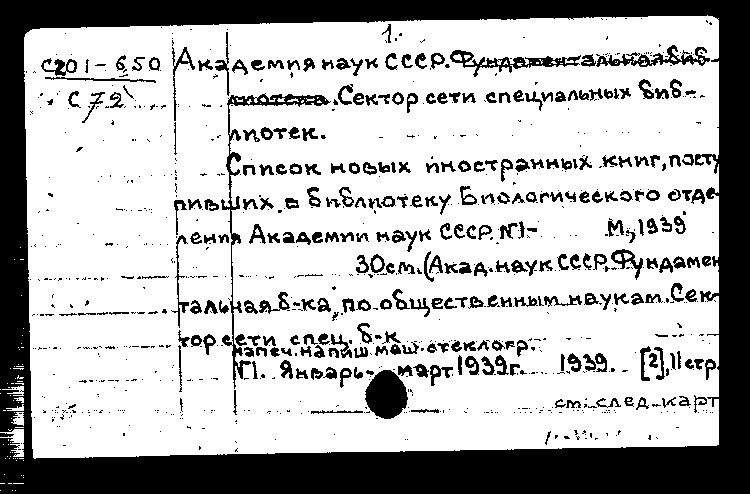 1.
С201-650 Академия наук СССР. Фундаментальная биб-
С 72 лиотека. Сектор сети специальных биб-
лиотек.
Список новых иностранных книг, посту
пивших в библиотеку Биологического отде-
ления Академии наук СССР. №1- М., 1939
30см. (Акад. наук СССР. Фундамен
тальная б-ка по общественным наукам. Сек-
тор сети спец. б-к
напеч. на пиш. маш. стеклогр.
№1. Январь-март 1939г. 1939. [2], 11 стр.
см. след. карт